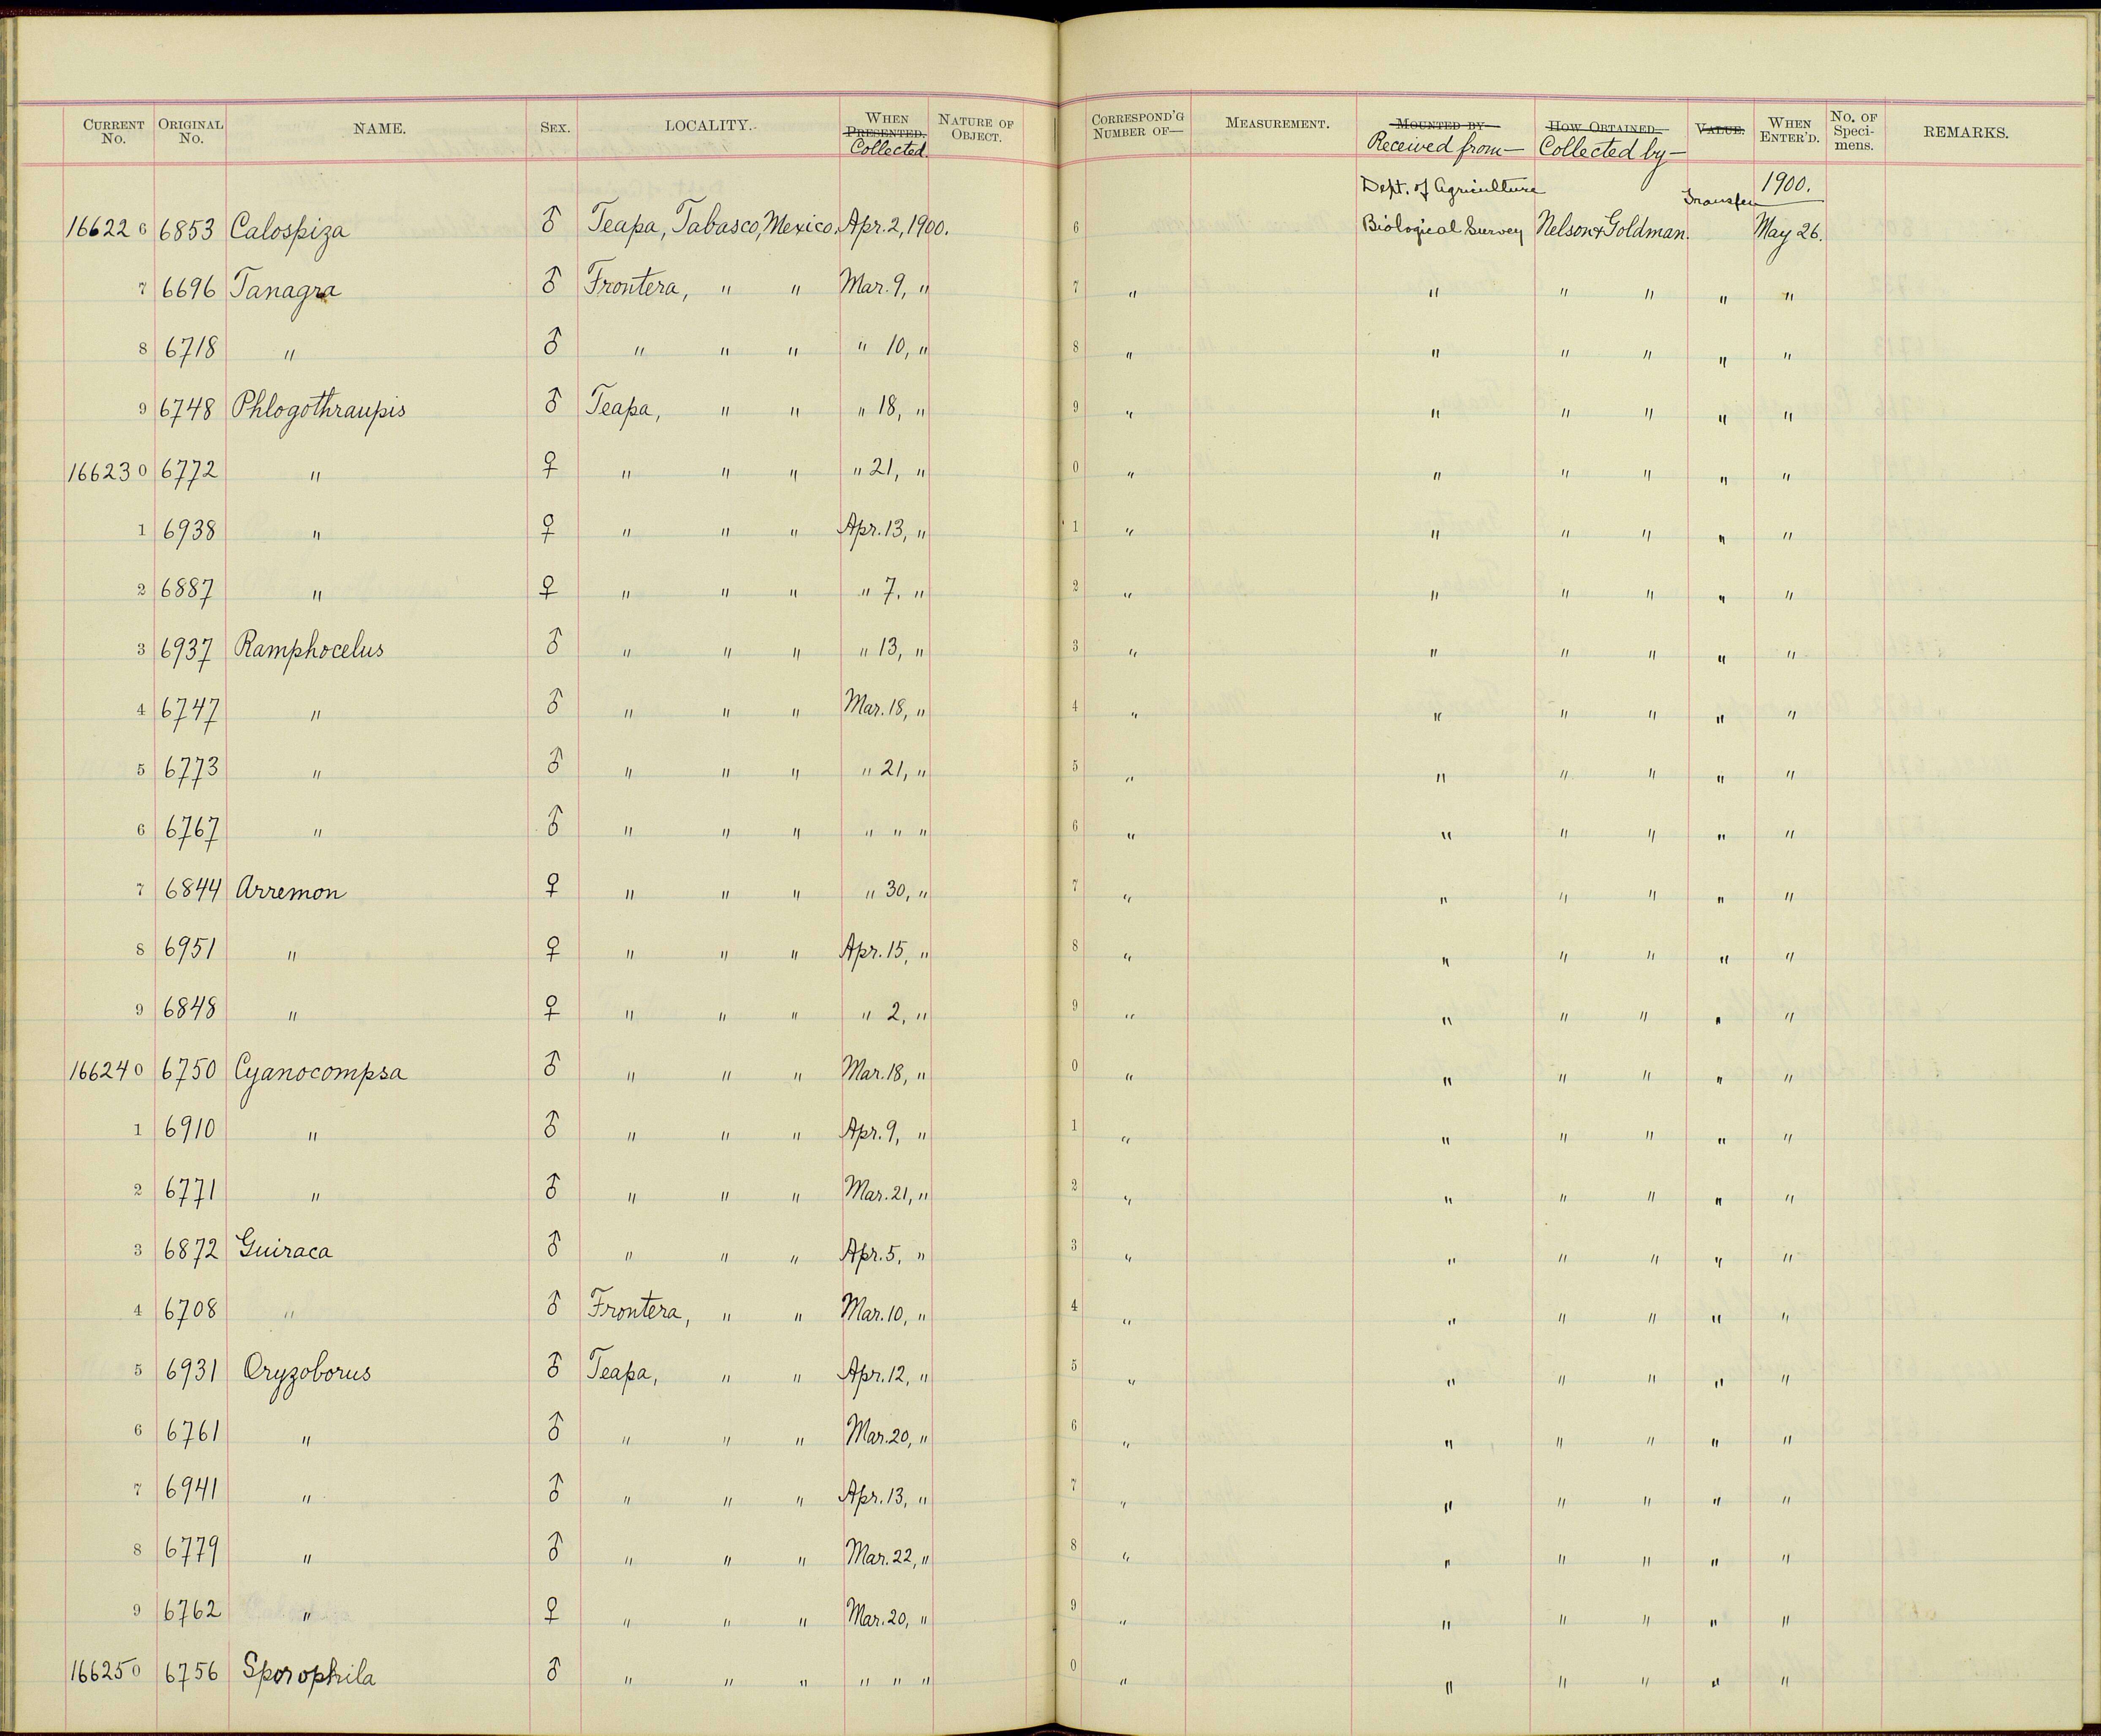 CURRENT No. ORIGINAL No. NAME. SEX. LOCALITY. WHEN PRESENTED. Collected. NATURE OF OBJECT. CORRESPOND'G NUMBER OF— MEASUREMENT. MOUNTED BY Received from— HOW OBTAINED. Collected by— VALUE. WHEN ENTER'D. No. OF Speci-mens. REMARKS.
Dept. of Agriculture Transfer 1900.
16622 6 6853 Calospiza ♂ Teapa, Tabasco, Mexico. Apr. 2, 1900. 6 Biological Survey Nelson & Goldman. May 26.
7 6696 Tanagra ♂ Frontera, " " Mar. 9, " 7 " " " " " "
8 6718 " ♂ " " " " 10, " 8 " " " " " "
9 6748 Phlogothraupis ♂ Teapa, " " " 18, " 9 " " " " " "
16623 0 6772 " ♀ " " " " 21, " 0 " " " " " "
1 6938 " ♀ " " " Apr. 13, " 1 " " " " " "
2 6887 " ♀ " " " " 7, " 2 " " " " " "
3 6937 Ramphocelus ♂ " " " " 13, " 3 " " " " " "
4 6747 " ♂ " " " Mar. 18, " 4 " " " " " "
5 6773 " ♂ " " " " 21, " 5 " " " " " "
6 6767 " ♂ " " " " " " 6 " " " " " "
7 6844 Arremon ♀ " " " " 30, " 7 " " " " " "
8 6951 " ♀ " " " Apr. 15, " 8 " " " " " "
9 6848 " ♀ " " " " 2, " 9 " " " " " "
16624 0 6750 Cyanocompsa ♂ " " " Mar. 18, " 0 " " " " " "
1 6910 " ♂ " " " Apr. 9, " 1 " " " " " "
2 6771 " ♂ " " " Mar. 21, " 2 " " " " " "
3 6872 Guiraca ♂ " " " Apr. 5, " 3 " " " " " "
4 6708 " ♂ Frontera, " " Mar. 10, " 4 " " " " " "
5 6931 Oryzoborus ♂ Teapa, " " Apr. 12, " 5 " " " " " "
6 6761 " ♂ " " " Mar. 20, " 6 " " " " " "
7 6941 " ♂ " " " Apr. 13, " 7 " " " " " "
8 6779 " ♂ " " " Mar. 22, " 8 " " " " " "
9 6762 " ♀ " " " Mar. 20, " 9 " " " " " "
16625 0 6756 Sporophila ♂ " " " " " " 0 " " " " " "